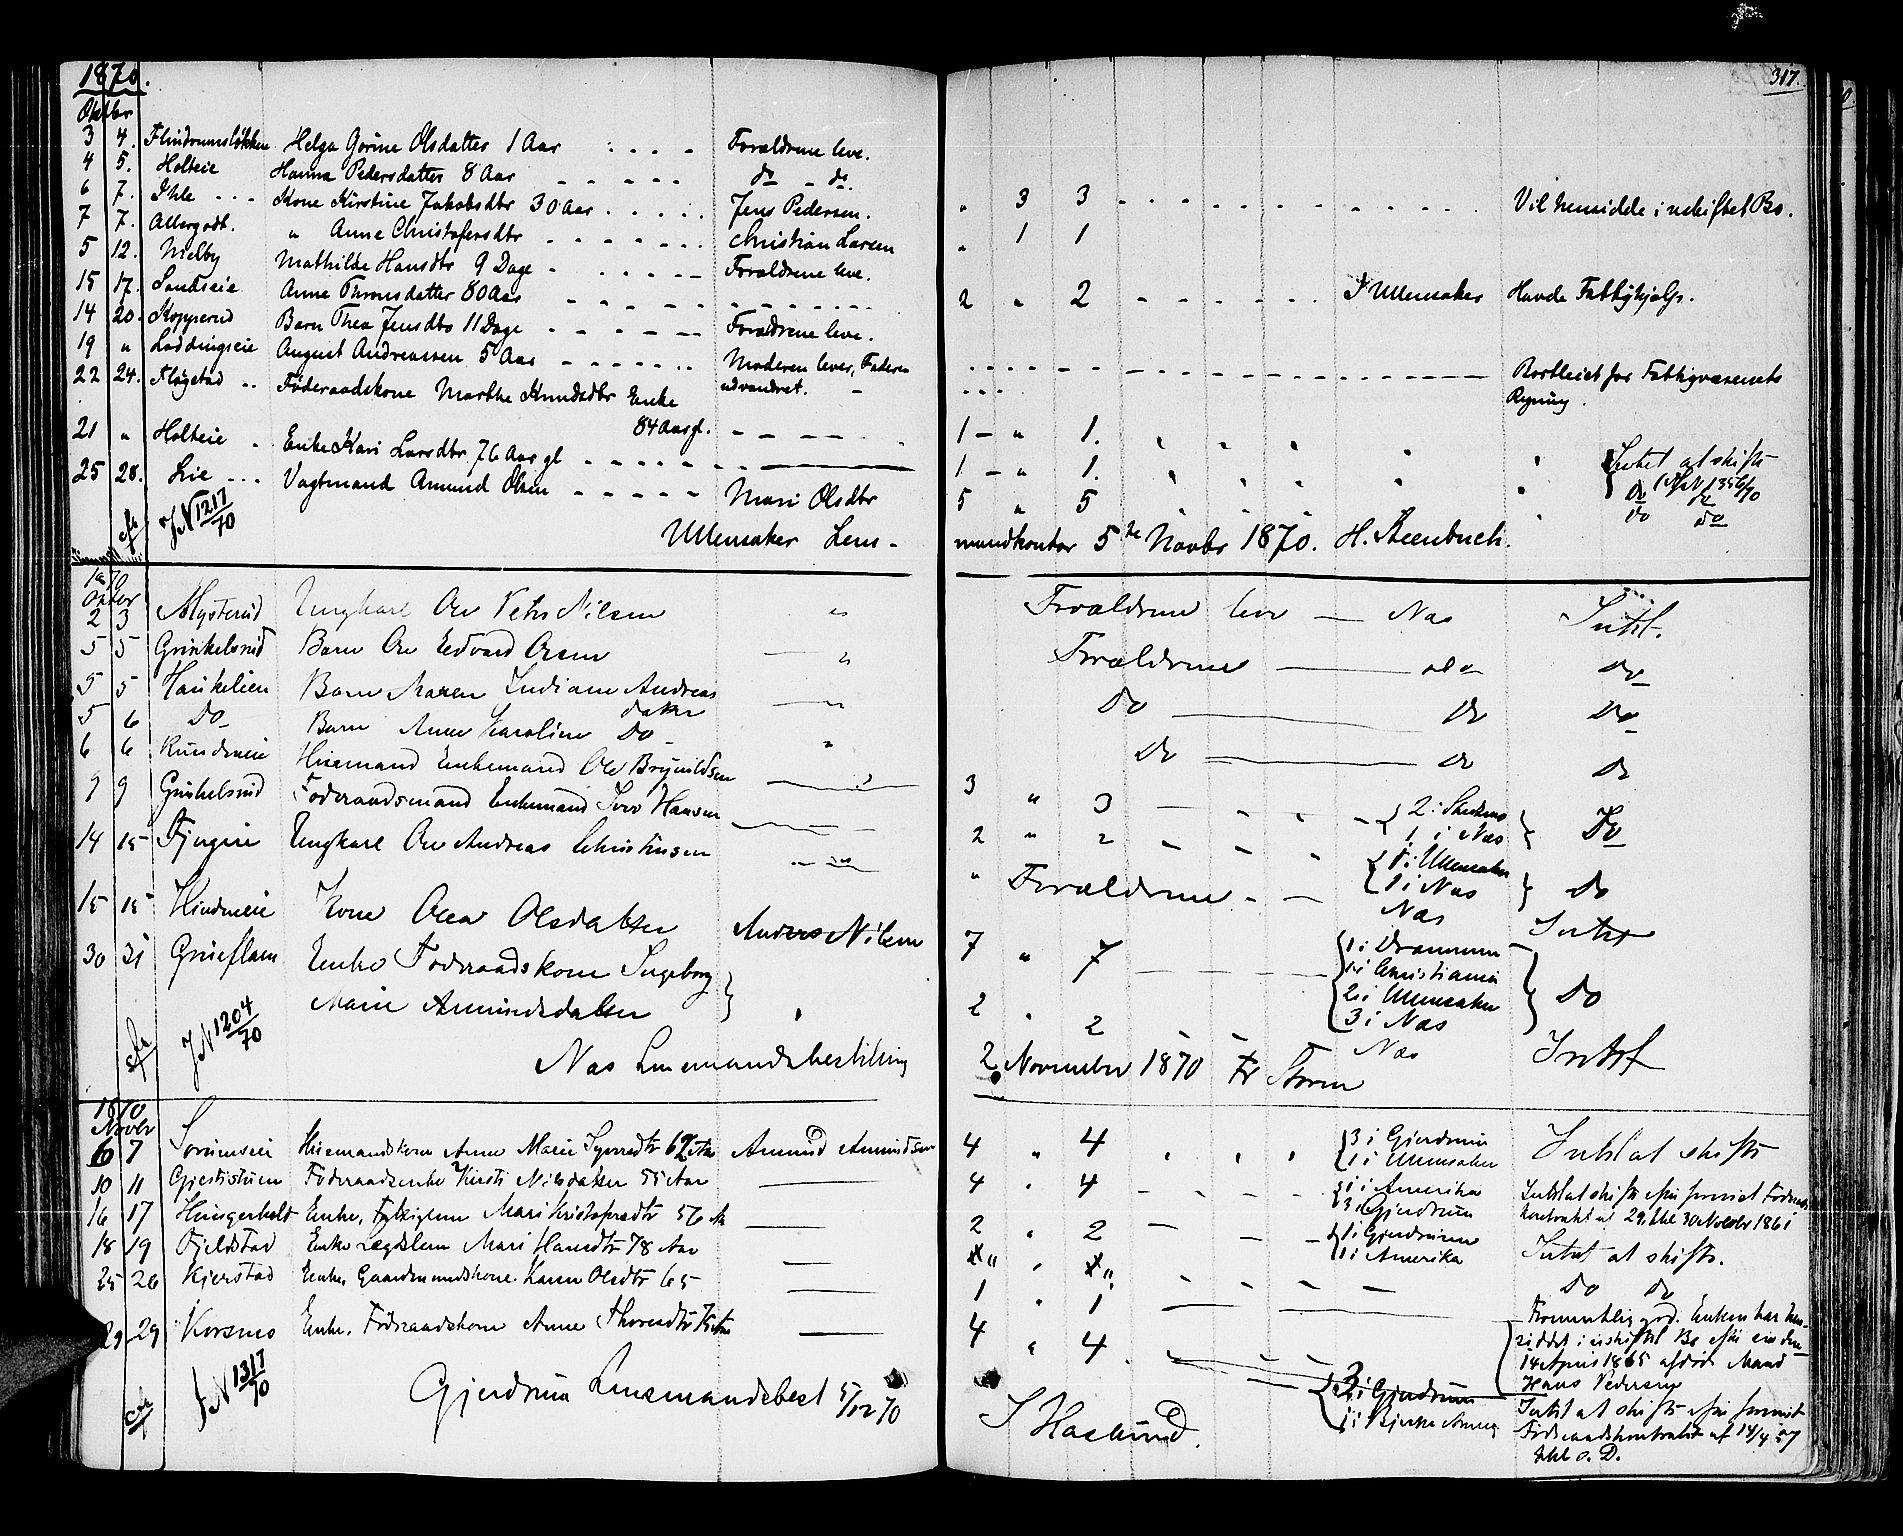 1870.
317.
Oktbr
3 4. Flindrumsløkken Helga Gorine Olsdatter 1 Aar Forældrene leve.
4 5. Holteie Hanna Pedersdatter 8 Aar do do.
6 7. Ihle Kone Kirstine Jakobsdtr 30 Aar Jens Pedersen. " 3 3 Vil hensidde i uskiftet Bo.
7 7. Allergodt. " Anne Christofersdtr Christian Larsen " 1 1
5 12. Melby Mathilde Hansdtr 9 Dage Forældrene leve.
15 17. Sandseie Anne Thronsdatter 80 Aar 2 " 2 I Ullensaker Havde Fattighjelp.
14 20. Kopperud Barn Thea Jensdtr 11 Dage Forældrene leve.
19 " Laddingseie August Andreassen 5 Aar Moderen lever, Faderen udvandret. Bortleiet for Fattigvæsenets Regning.
22 24. Fløgstad Føderaadskone Marthe Knudsdtr Enke
84 Aar gl. 1 " 1. Intet at skifte
21 " Holteie Enke Kari Larsdtr 76 Aar gl 1 " 1. do do
25 28. Lie Vagtmand Amund Olsen Mari Olsdtr 5 " 5 do do
cfr JN 1217/70
Ullensaker Lensmandkontor 5te Novbr 1870. H. Steenbuch.
1870
Oktbr
2 3 Mysterud Ungkarl Ole Petter Nilsen " Forældrene leve Næs Intet.
5 5 Grinkelsrud Barn Ole Edvard Olsen " Forældrene do do
5 5 Haukelien Barn Maren Indiane Andreas
datter " Do Do Do
5 6 Do Barn Anne Karoline Do " Do Do Do
6 6 Rundseie Huusmand Enkemand Ole Brynildsen 3 " 3 2 i
1 i Næs Do
9 9 Grinkelsrud Føderaadsmand Enkemand Iver Hansen 2 " 2 1 i Ullensaker
1 i Næs Do
14 15 Ungkarl Ole Andreas Christiansen " Forældrene Næs Intet
15 15 Kone Olea Olsdatter Anders Nilsen 7 " 7 1 i Drammen
1 i Christiania
2 i Ullensaker
3 i Næs Do
30 31 Enke Føderaadskone Ingeborg
Marie Amundsdatter " 2 " 2 Næs Intet
cfr JN 1204/70
Næs Lensmandsbestilling 2 November 1870 Fr Strøm
1870
Novbr
6 7 Sørumseie Huusmandskone Anne Marie 62 Aar Amund Amundsen 4 " 4 3 i Gjerdrum
1 i Ullensaker Intet at skifte
10 11 Gjestistuen Føderaadsenke Kirsti Nilsdatter 55 Aar 4 " 4 1 i Amerika
3 i Gjerdrum Intet at skifte efter Føderaads
kontrakt af 29 thl 30 Novbr 1861
16 17 Hungerholdt Enke, Fattiglem Mari Kristofersdtr 56 Aar 2 " 2 1 i Gjerdrum
1 i Amerika Intet at skifte.
18 19 Fjeldstad Enke Lægdslem Mari Hansdtr 78 Aar Do Do
25 26 Kjerstad Enke, Gaardmandskone Karen Olsdtr 65 1 " 1 Formentlig god. Enken har hen-
siddet i uskiftet Bo efter sin den
14 April 1865 afdøde Mand
Hans Pedersen
29 29 Korsmo Enke, Føderaadskone Anne 4 " 4 3 i Gjerdrum
1 i Intet at skifte efter
Føderaadskontrakt af 14/4 57
thl s. D.
cfr JN 1317/70
Gjerdrum Lensmandsbest 5/12 70